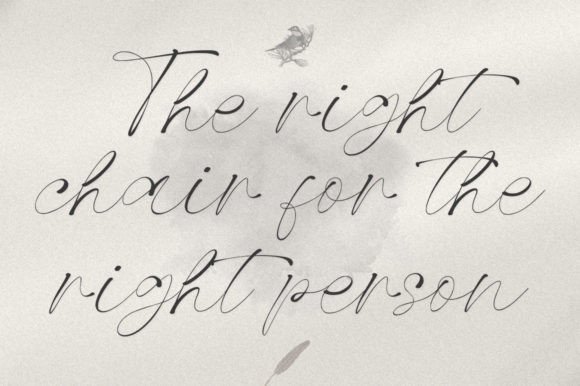 The right
chair for the
right person